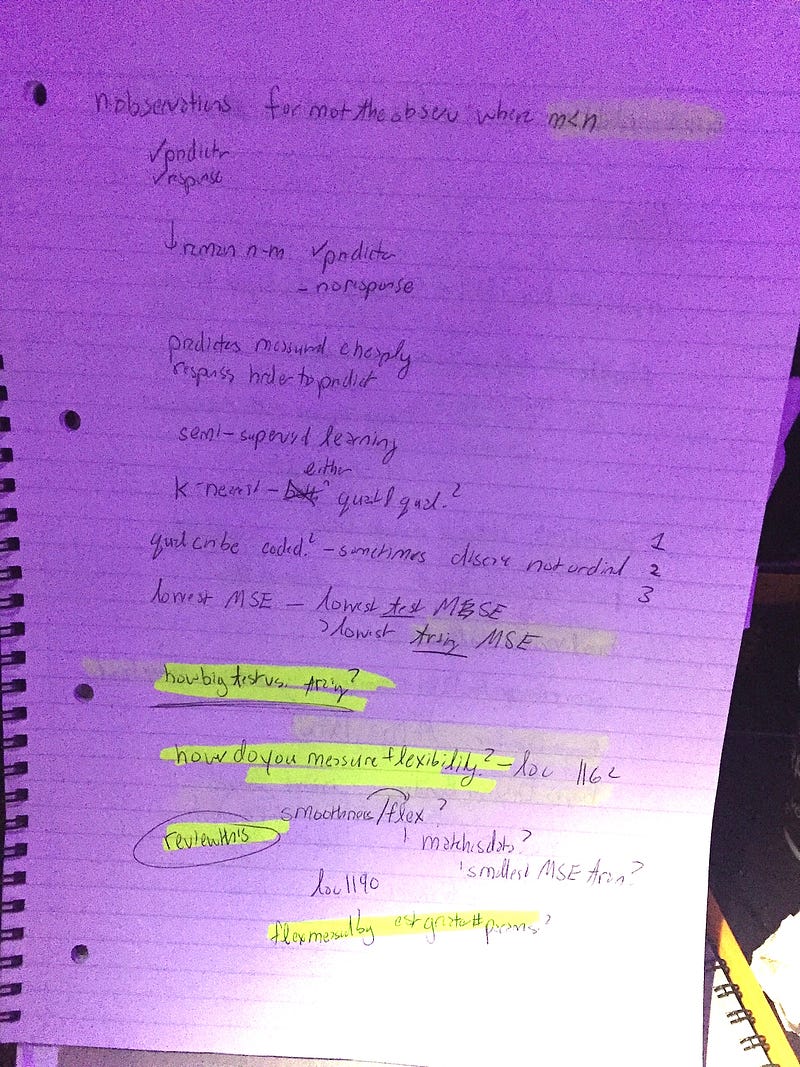 n observations for m of the observ where m<n
✓predictr
✓response
↓ reman n-m ✓predictr
- no response
predictrs measured cheaply
respons harder to predict
semi-supervised learning
either
K-nearest - quat/qual.?
qual cn be coded? - sometimes discre not ordinl
1
2
3
lowest MSE - lowest test MSE
>lowest traing MSE
how big test vs. traing?
how do you measure flexibility? - loc 1162
smoothness/flex?
review this
matches data?
smallest MSE train?
loc 1190
flex measurd by est greater # params?